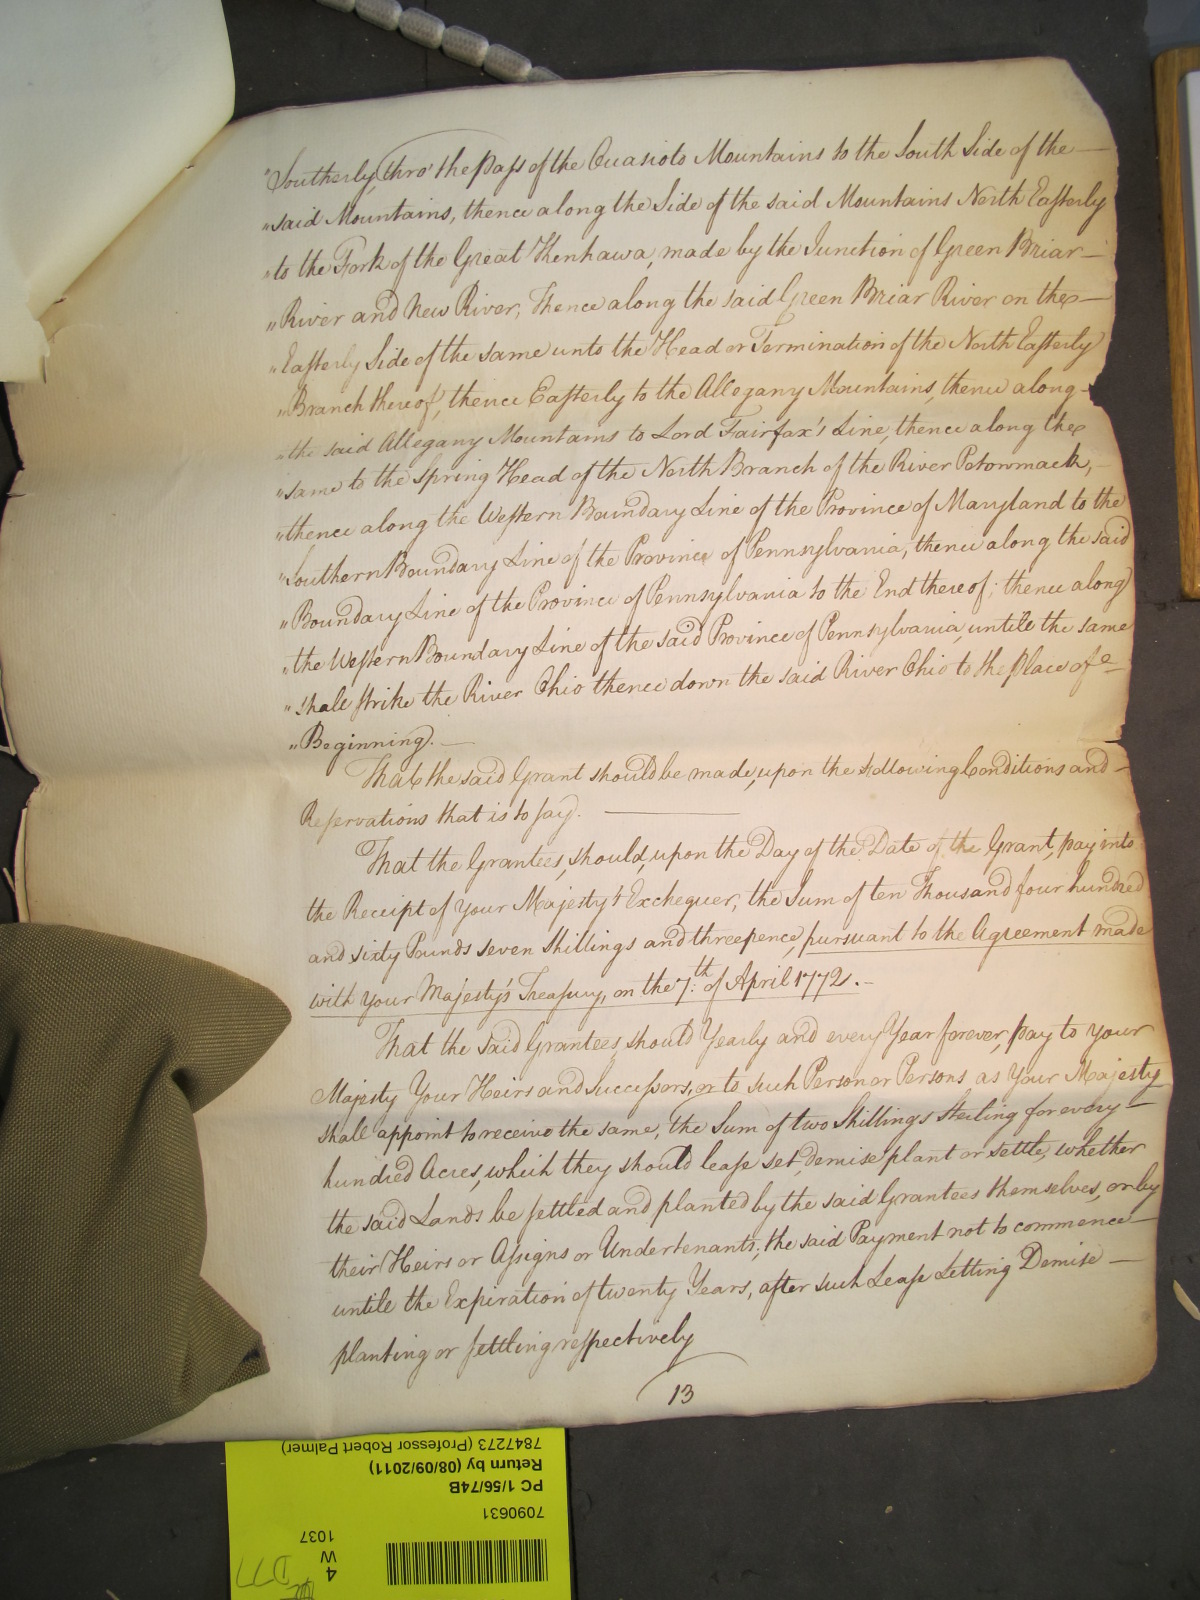 "Southerly, thro' the Pass of the Ouasioto Mountains to the South Side of the
"said Mountains, thence along the Side of the said Mountains North Easterly
"to the Fork of the Great Khenhawa, made by the Junction of Green Briar
"River and New River; Thence along the said Green Briar River on the
"Easterly Side of the same unto the Head or Termination of the North Easterly
"Branch thereof, thence Easterly to the Allegany Mountains, thence along
"the said Allegany Mountains to Lord Fairfax's Line, thence along the
"same to the Spring Head of the North Branch of the River Potowmack,
"thence along the Western Boundary Line of the Province of Maryland to the
"Southern Boundary Line of the Province of Pennsylvania, thence along the said
"Boundary Line of the Province of Pennsylvania to the End thereof; thence along
"the Western Boundary Line of the said Province of Pennsylvania, untill the same
"shall strike the River Ohio thence down the said River Ohio to the Place of
"Beginning.
That the said Grant should be made, upon the following Conditions and
Reservations that is to say.
That the Grantees, should, upon the Day of the Date of the Grant, pay into
the Receipt of Your Majesty's Exchequer, the Sum of ten Thousand four hundred
and sixty Pounds seven Shillings and threepence, pursuant to the Agreement made
with Your Majesty's Treasury, on the 7th. of April 1772.
That the said Grantees, should Yearly and every Year forever, pay to Your
Majesty Your Heirs and Successors, or to such Person or Persons as Your Majesty
shall appoint to receive the same, the Sum of two Shillings Sterling for every
hundred Acres, which they should lease set, demise plant or settle, whether
the said Lands be settled and planted by the said Grantees themselves, or by
their Heirs or Assigns or Undertenants; the said Payment not to commence
untill the Expiration of twenty Years, after such Lease Letting Demise
planting or settling respectively
13
7847273 (Professor Robert Palmer)
Return by (08/09/2011)
PC 1/56/74B
7090631
1037
W
4
D77